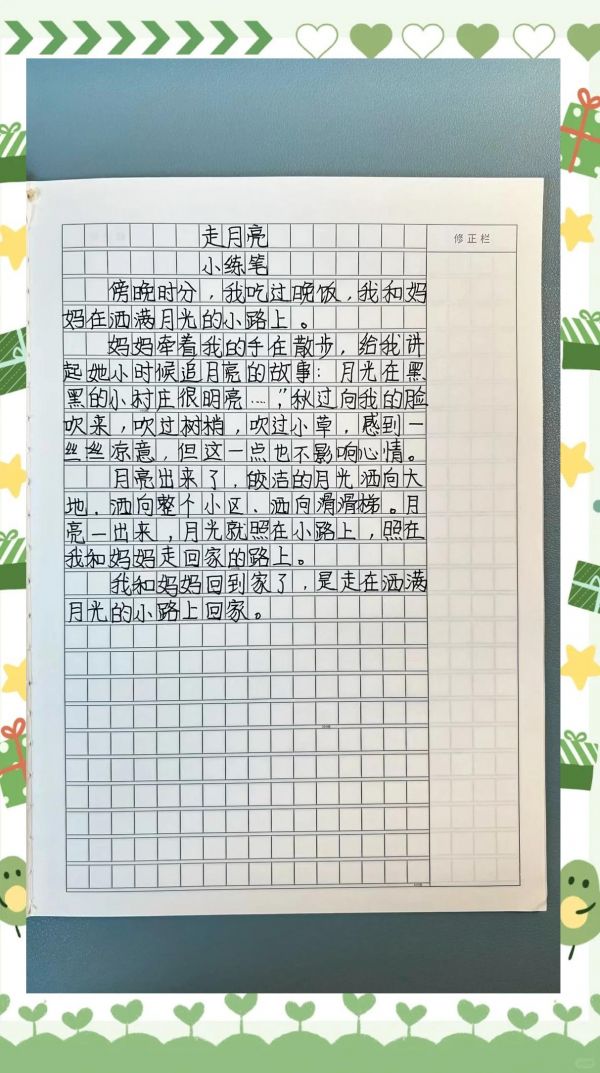 走月亮
修正栏
小练笔
傍晚时分，我吃过晚饭，我和妈
妈在洒满月光的小路上。
妈妈牵着我的手在散步，给我讲
起她小时候追月亮的故事：月光在黑
黑的小村庄很明亮……，"秋过向我的脸
吹来，吹过树梢，吹过小草，感到一
丝丝凉意，但这一点也不影响心情。
月亮出来了，皎洁的月光洒向大
地，洒向整个小区、洒向滑滑梯。月
亮一出来，月光就照在小路上，照在
我和妈妈走回家的路上。
我和妈妈回到家了，是走在洒满
月光的小路上回家。